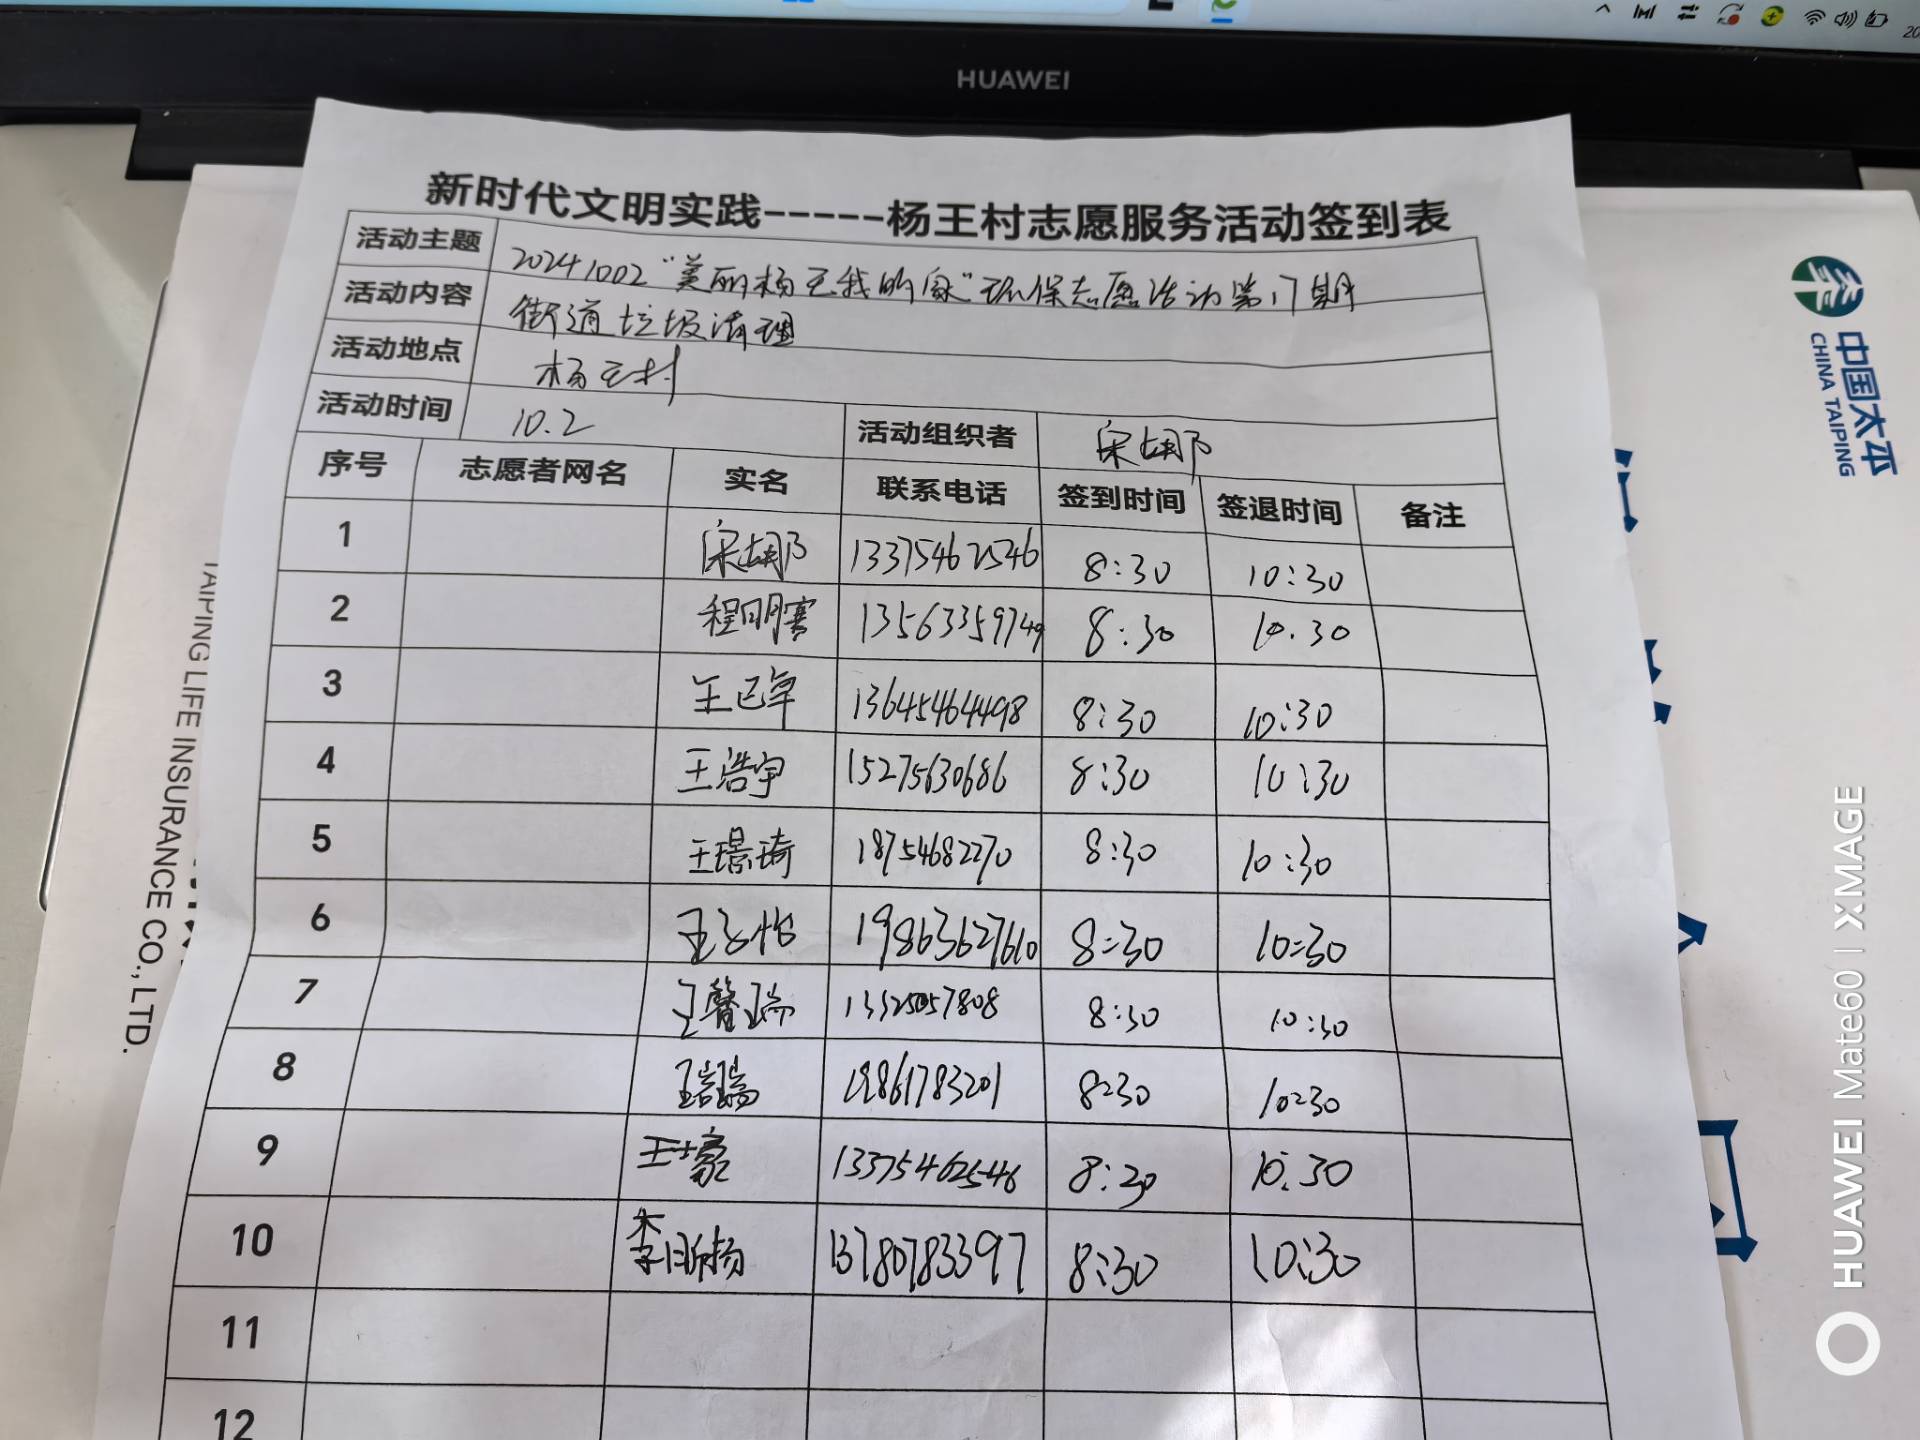 HUAWEI
新时代文明实践-----杨王村志愿服务活动签到表
活动主题 20241002“美丽杨王我的家”环保志愿活动第17期
活动内容 街道垃圾清理
活动地点 杨王村
活动时间 10.2 活动组织者 宋胡邓
序号 志愿者网名 实名 联系电话 签到时间 签退时间 备注
1 13375462546 8:30 10:30
2 程明睿 13563359749 8:30 10.30
3 13645464498 8:30 10:30
4 王浩宇 15275630686 8:30 10:30
5 王璟琦 18754682270 8:30 10:30
6 19863627610 8:30 10:30
7 王馨瑞 13325057808 8:30 10:30
8 19861783201 8:30 10:30
9 王士豪 13375462546 8:30 10:30
10 李昕扬 13780783397 8:30 10:30
11
12
中国太平
CHINA TAIPING
TAIPING LIFE INSURANCE CO.,LTD.
HUAWEI Mate60 | XMAGE